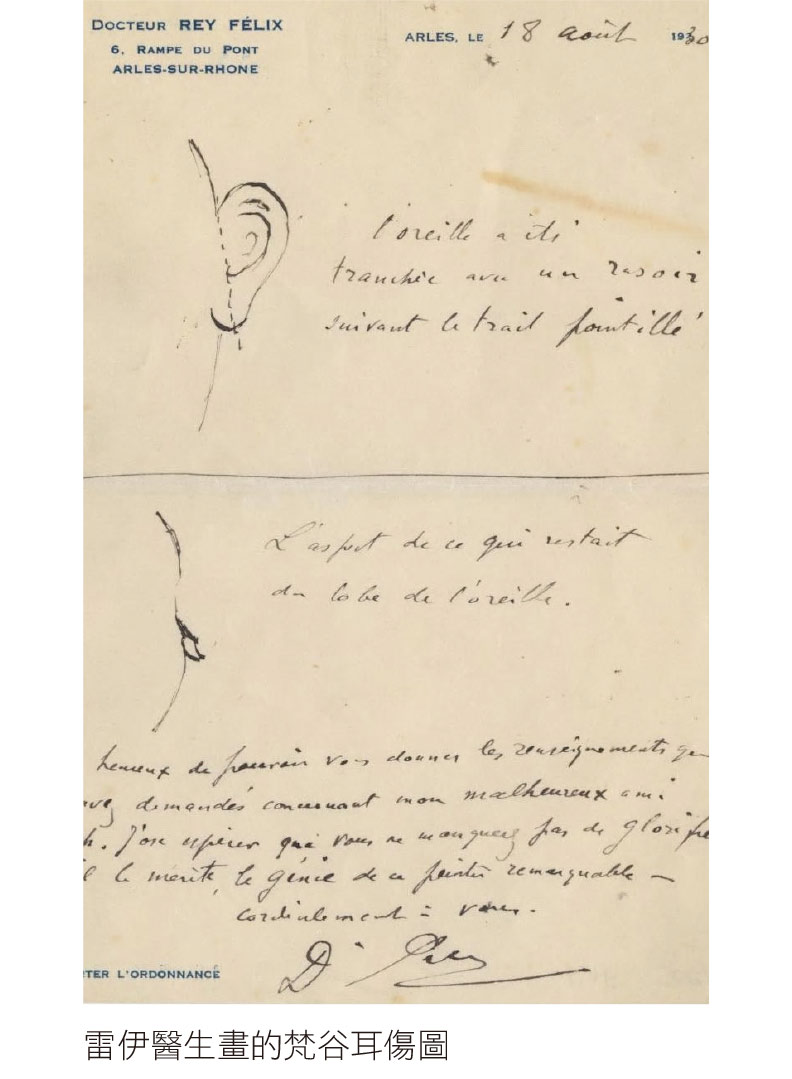 DOCTEUR REY FÉLIX
6, RAMPE DU PONT
ARLES-SUR-RHONE
ARLES, LE 18 août 1930
l'oreille a été
tranchée avec un rasoir
suivant le trait pointillé
L'aspect de ce qui restait
du lobe de l'oreille.
heureux de pouvoir vous donner les renseignements que
avez demandés concernant mon malheureux ami
h. J'ose espérer que vous ne manquerez pas de glorifie
il le mérite, le génie de ce peintre remarquable —
cordialement à vous.
Dr Rey
TER L'ORDONNANCE
雷伊醫生畫的梵谷耳傷圖